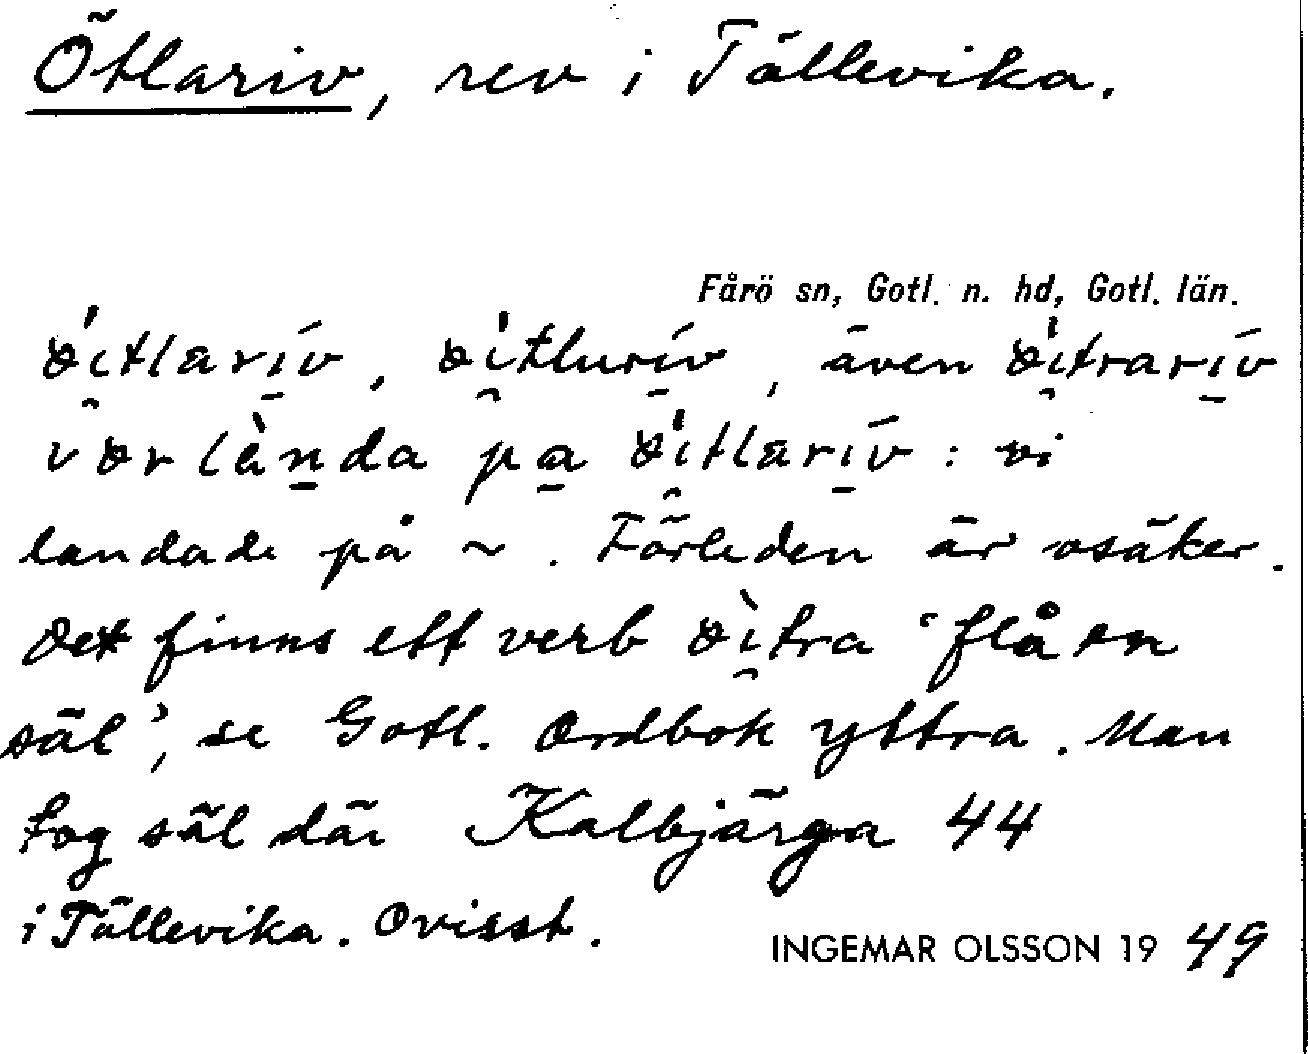 Ötlariv, rev i Tällevika.
Fårö sn, Gotl. n. hd, Gotl. län.
även
: vi
landade på ~. Förleden är osäker.
Det finns ett verb "flå en
säl", se Gotl. Ordbok yttra. Man
tog säl där Kalbjärga 44
i Tällevika. Ovisst.
INGEMAR OLSSON 19 49